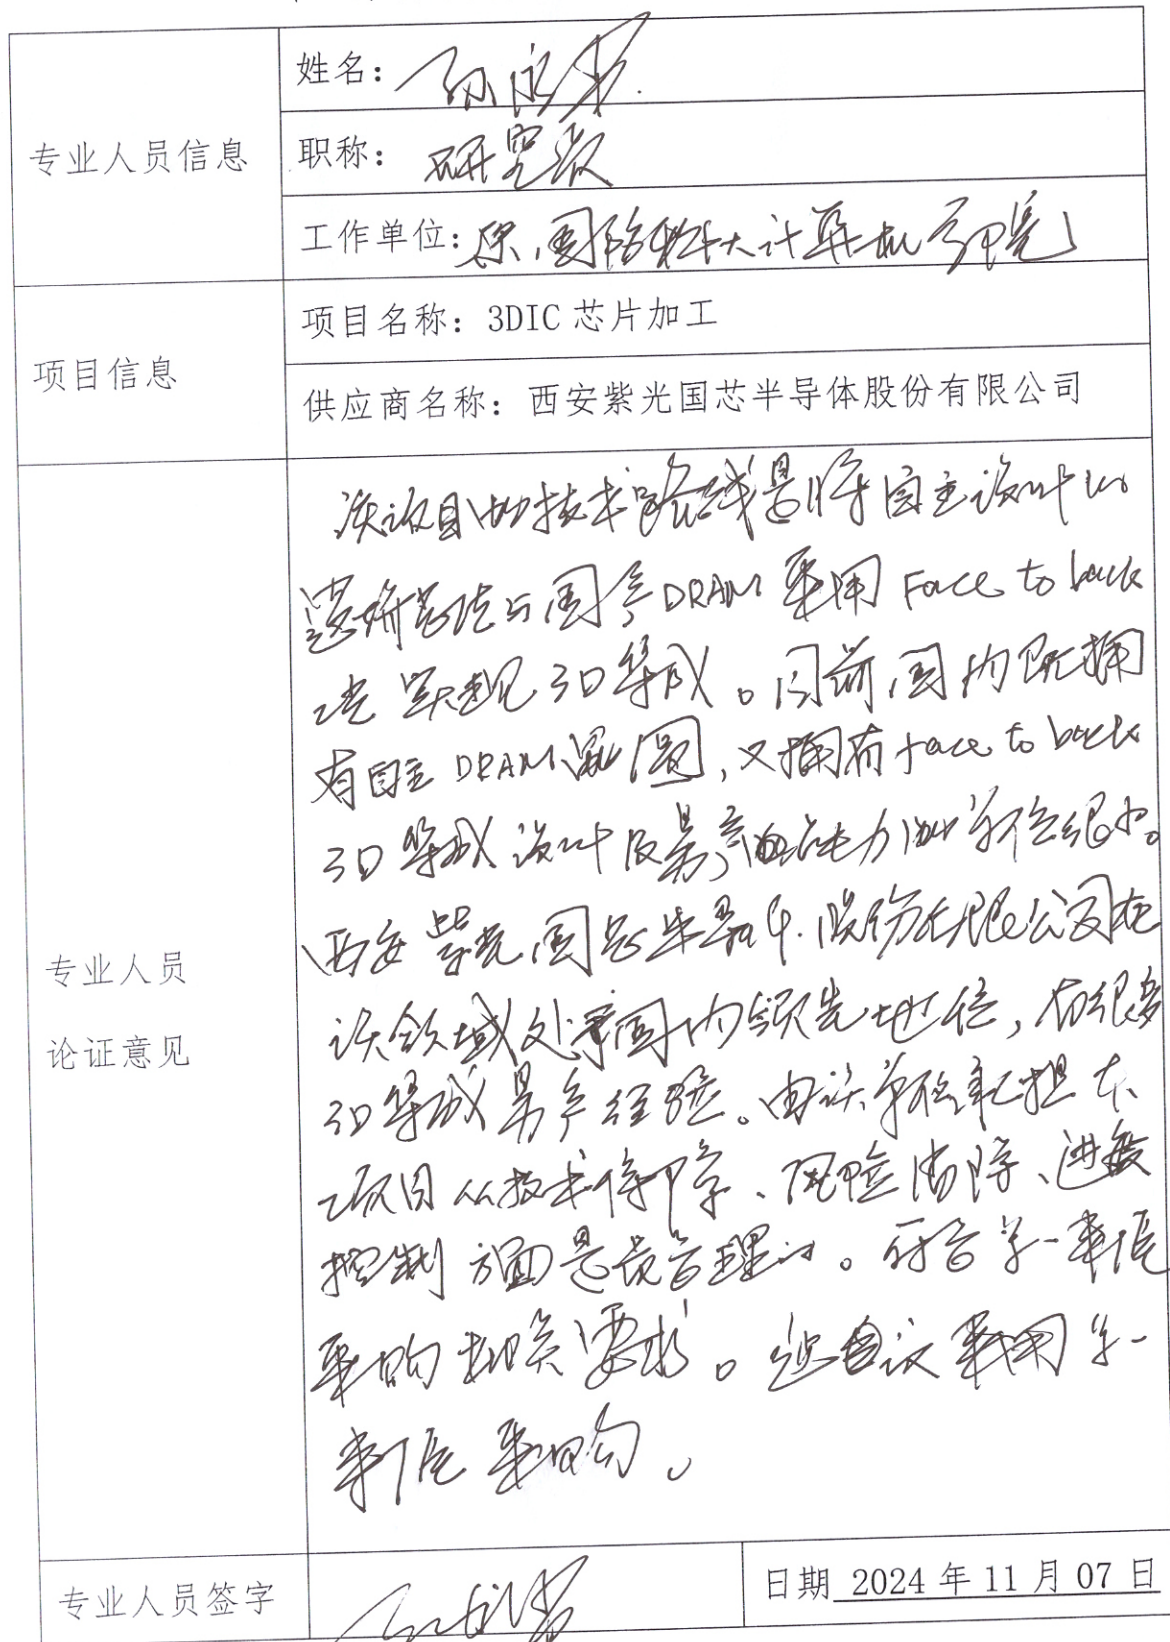 专业人员信息
姓名：孙永节
职称：研究员
工作单位：原国防科大计算机学院
项目信息
项目名称：3DIC 芯片加工
供应商名称：西安紫光国芯半导体股份有限公司
专业人员
论证意见
该项目的技术路线是将自主设计的
逻辑芯片与国产DRAM采用 Face to back
实现3D集成。目前国内既拥
有自主DRAM晶圆，又拥有face to back
3D集成设计及量产能力的单位很少。
西安紫光国芯半导体股份有限公司在
该领域处于国内领先地位，有很多
3D集成量产经验。由该单位承担本
项目从技术保障、风险消除、进度
控制方面是最合理的。符合单一来源
采购相关要求。建议采用单一
来源采购。
专业人员签字
日期 2024 年 11 月 07 日